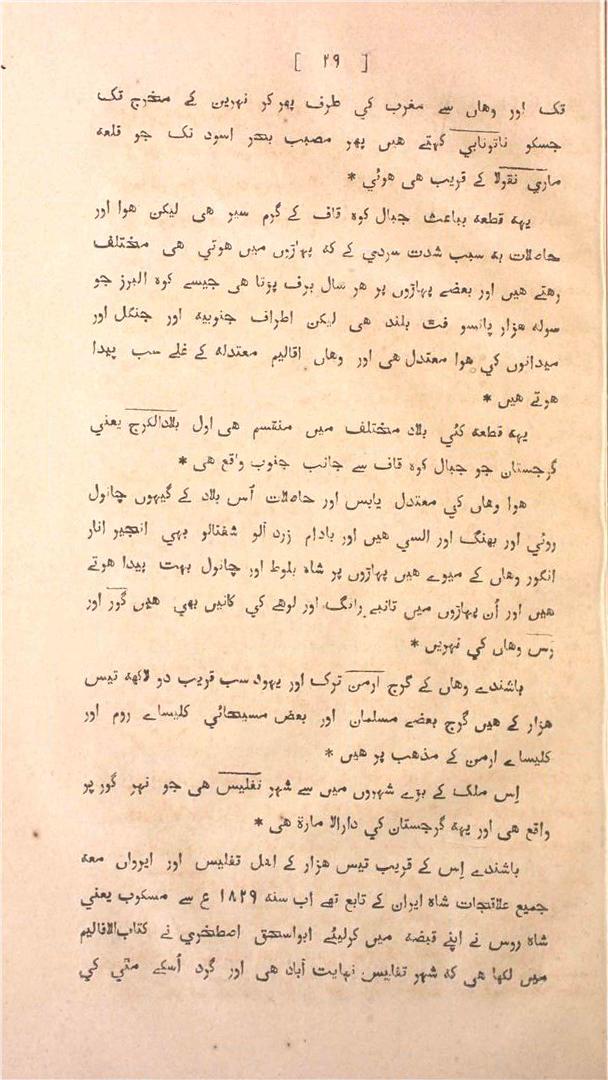 [ ٢٩ ]
تک اور وهاں سے مغرب کي طرف پهر کر نهرین کے مخرج تک
جسکو ناتونابي کہتے هیں پهر مصبب بحر اسود تک جو قلعه
ماري نقولا کے قریب هی هوئي *
یہه قطعه بباعث جبال کوه قاف کے گرم سیر هی لیکن هوا اور
حاصلات به سبب شدت سردي کے که پہاڑوں میں هوتي هی مختلف
رهتے هیں اور بعضے پہاڑوں پر هر سال برف پڑتا هی جیسے کوه البرز جو
سوله هزار پانسو فت بلند هی لیکن اطراف جنوبیه اور جنگل اور
میدانوں کي هوا معتدل هی اور وهاں اقالیم معتدله کے غلے سب پیدا
هوتے هیں *
یہه قطعه کئي بلاد مختلف میں منقسم هی اول بلادالکرج یعني
گرجستان جو جبال کوه قاف سے جانب جنوب واقع هی *
هوا وهاں کي معتدل یابس اور حاصلات اُس بلاد کے گیہوں چانول
روئي اور بهنگ اور السي هیں اور بادام زرد آلو شفتالو بہي انجیر انار
انگور وهاں کے میوے هیں پہاڑوں پر شاه بلوط اور چانول بہت پیدا هوتے
هیں اور اُن پہاڑوں میں تانبے رانگ اور لوهے کي کانیں بهي هیں گور اور
رس وهاں کي نہریں *
باشندے وهاں کے گرج ارمن ترک اور یہود سب قریب دو لاکهه تیس
هزار کے هیں گرج بعضے مسلمان اور بعض مسیحائي کلیساے روم اور
کلیساے ارمن کے مذهب پر هیں *
اِس ملک کے بڑے شہروں میں سے شہر تفلیس هی جو نہر گور پر
واقع هی اور یہه گرجستان کي دارالا مارة هی *
باشندے اِس کے قریب تیس هزار کے اهل تفلیس اور ایرواں معه
جمیع علاقجات شاه ایران کے تابع تهے اب سنه ١٨٢٩ ع سے مسکوب یعني
شاه روس نے اپنے قبضه میں کرلیئے ابواسحق اصطخري نے کتاب‌الاقالیم
میں لکها هی که شہر تفلیس نہایت آباد هی اور گرد اُسکے مٹي کي